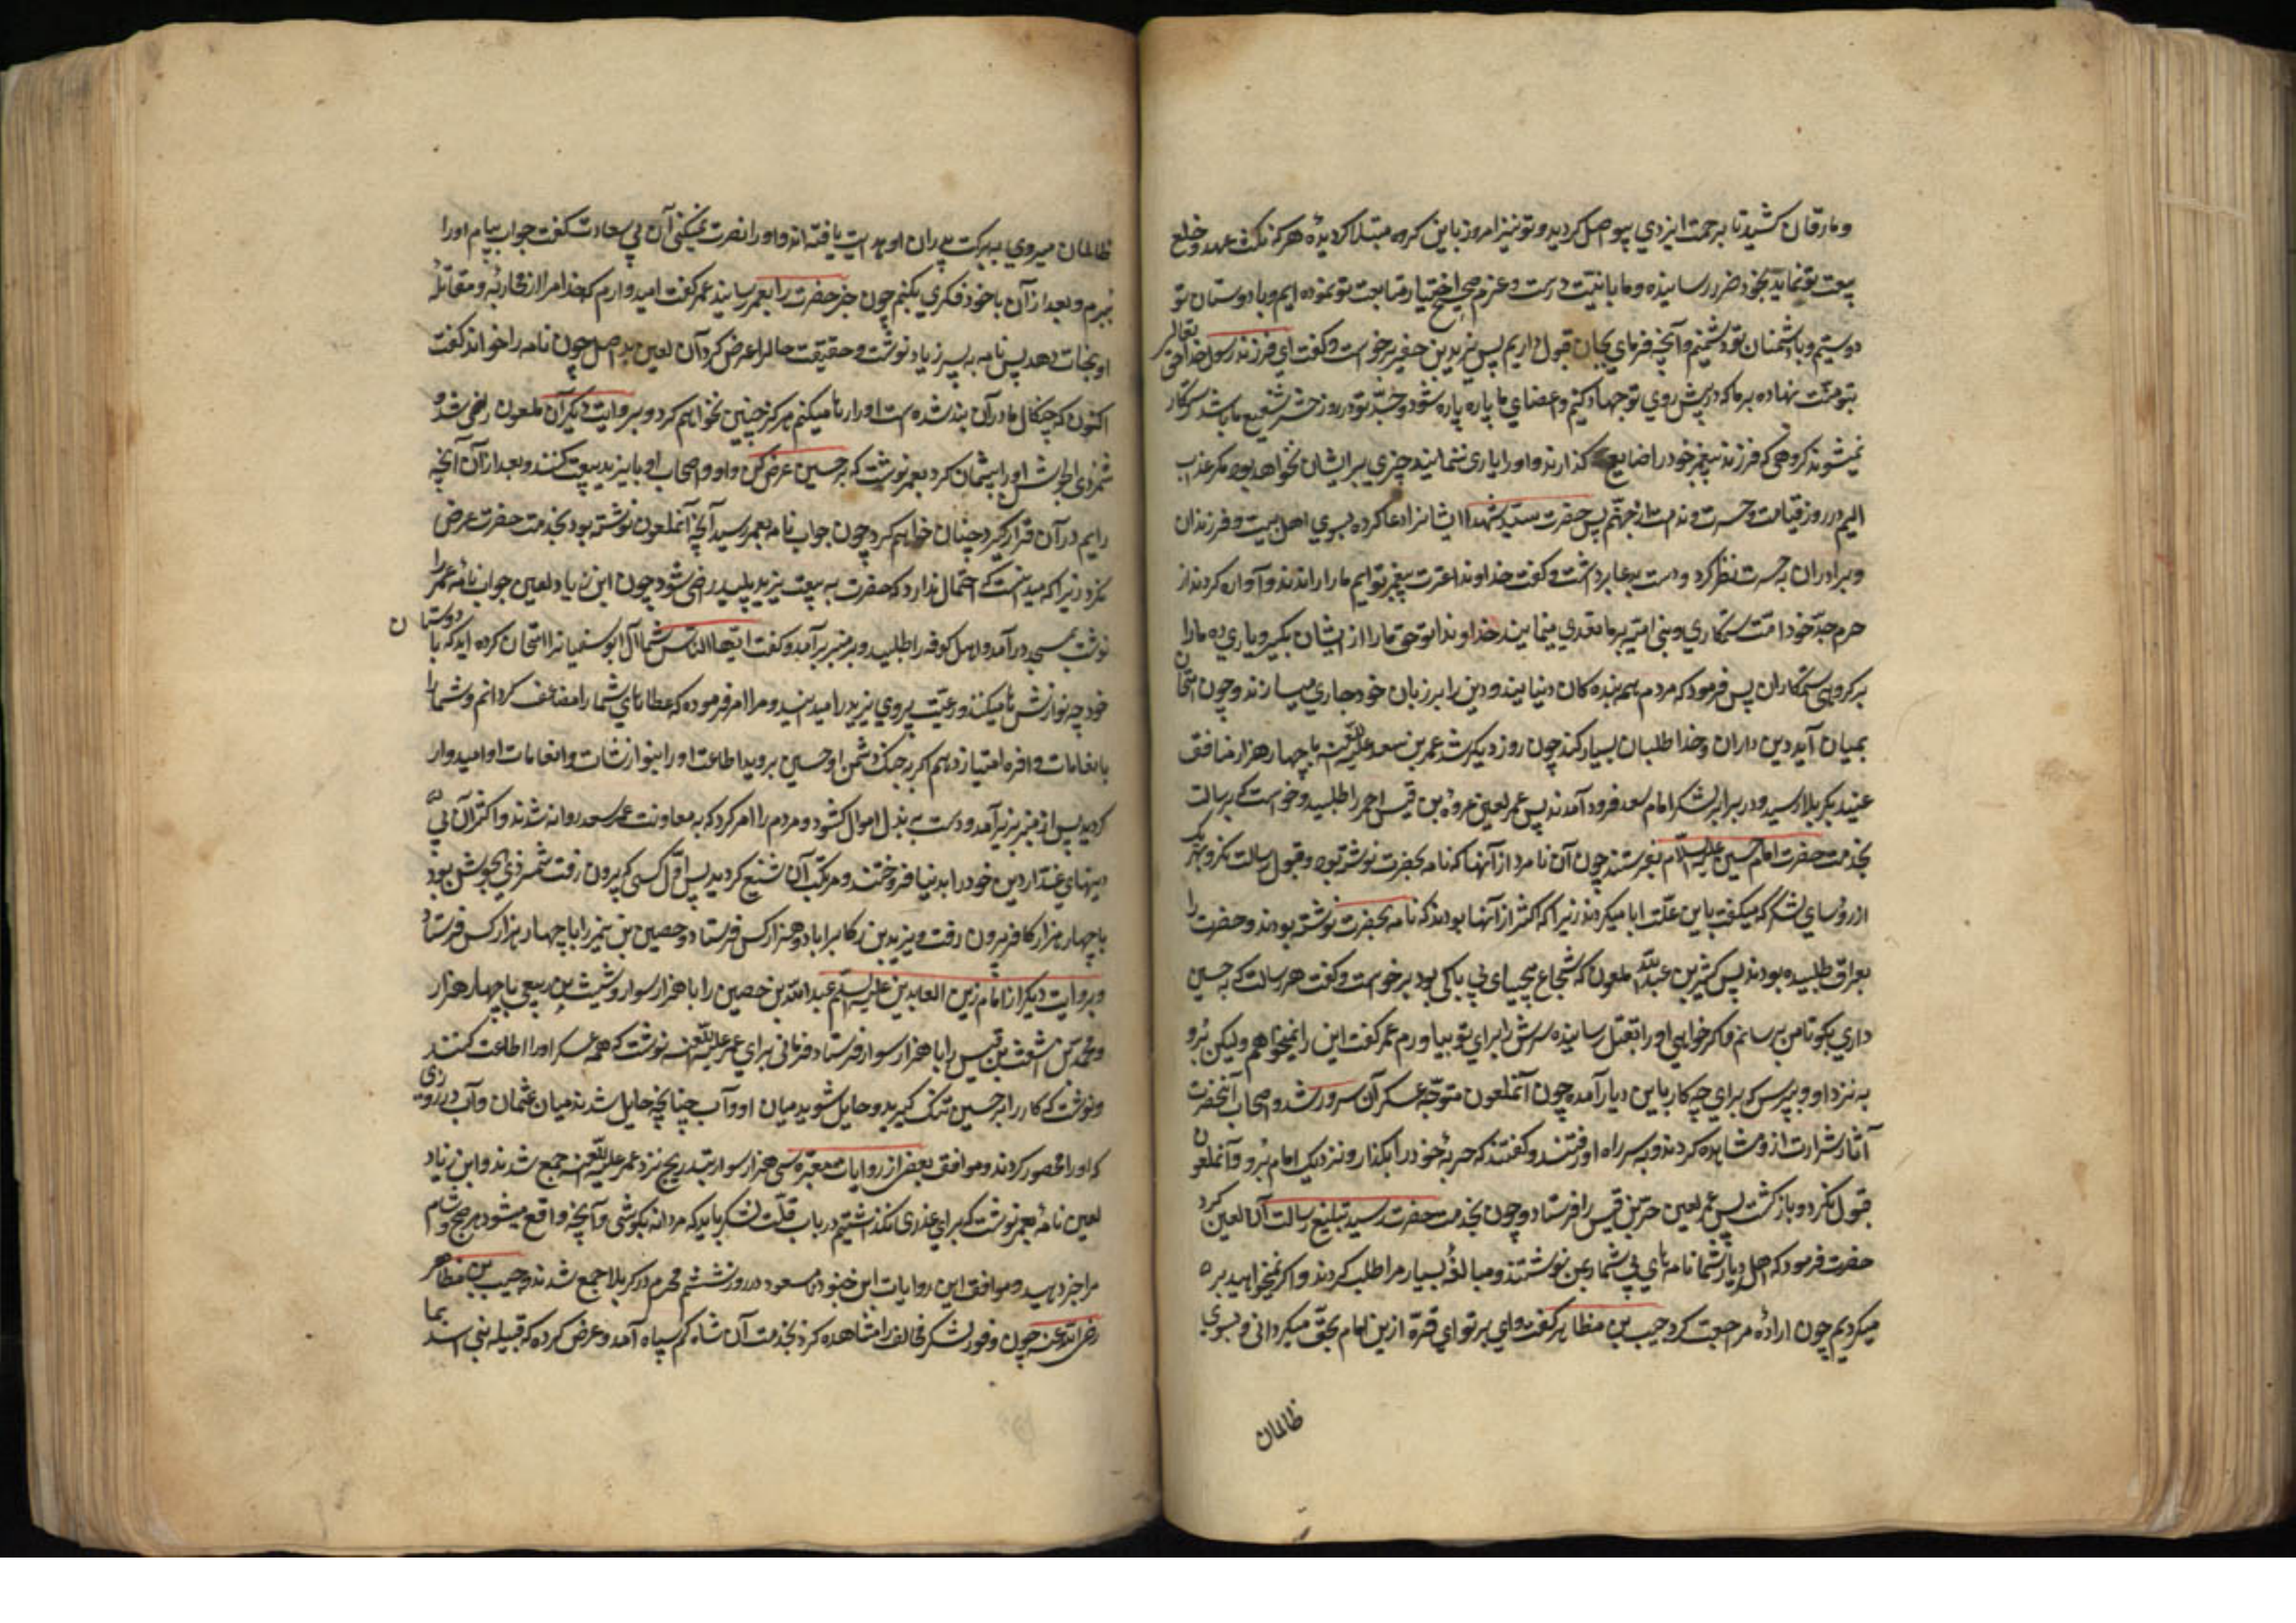 و مارقان کشید تا برحمت ایزدی پیواصل کردید و تو نیز امروز باین کروه مبتلا کردیدهٔ هر که نکث عهد و خلع
بیعت تو نماید بخود ضرر رسانیده و ما با نیت درست و عزم صحیح اختیار متابعت تو نموده ایم و با دوستان تو
دوستیم و با دشمنان تو دشمنیم و آنچه فرمای بجان قبول داریم پس بریر بن خضیر برخواست و کفت ای فرزند رسول خدا حق تعالی
بتو منت نهاده بر ما که در پیش روی تو جهاد کنیم و اعضای ما پاره پاره شود و جدّ تو در روز حشر شفیع ما باشد رستکار
نمیشوند کروهی که فرزند پیغمبر خود را ضایع کذارند و او را یاری ننمایند چیزی بر ایشان نخواهد بود مکر عذاب
الیم در روز قیامت و حسرت و ندامت در جهنّم پس حضرت سیّد شهدا ایشانرا دعا کرده بسوی اهل بیت و فرزندان
و برادران به حسرت نظر کرد و دست بدعا برداشت و کفت خداوندا عترت پیغمبر توایم ما را راندند و آواره کردند از
حرم جدّ خود امّت ستمکاری و بنی امیّه بر ما تعدی مینمایند خداوندا تو حق ما را از ایشان بکیر و یاری ده ما را
بر کروهی ستمکاران پس فرمود که مردم همه بنده کان دنیایند و دین را بر زبان خود جاری میسازند و چون امتحان
بمیان آید دین داران و خدا طلبان بسیار کمند چون روز دیکر شد عمر بن سعد علیه اللعنه با چهار هزار منافق
عنید بکربلا رسید و در برابر لشکر امام سعد فرود آمدند پس عمر لعین عروه بن قیس احمر را طلبید و خواست که برسالت
بخدمت حضرت امام حسین علیه السلام بفرستد چون آن نامرد از آنها که نامه بحضرت نوشته بود و قبول رسالت نکرد و بهر یک
از رؤسای لشکر که میکفت باین علّت ابا میکردند زیرا که اکثر از آنها بودند که نامه بحضرت نوشته بودند و حضرت را
بعراق طلبیده بودند پس کثیر بن عبدالله ملعون که شجاع بیحیای بی باکی بود برخواست و کفت هر رسالت که به حسین
داری بکو تا من برسانم و اکر خواهی او را بقتل رسانیده سرش را برای تو بیاورم عمر کفت این را نمیخواهم ولیکن برو
به نزد او و بپرس که برای چه کار باین دیار آمده چون آنملعون متوجّه عسکر آن سرور شد و اصحاب آنحضرت
آثار شرارت از او مشاهده کردند و به سر راه او رفتند و کفتند که حربهٔ خود را بکذار و نزدیک امام برو و آنملعون
قبول نکرد و بازکشت پس عمر لعین قیس را فرستاد و چون بخدمت حضرت رسید تبلیغ رسالت آن لعین کرد
حضرت فرمود که اهل دیار شما نامه های بی شمار بمن نوشتند و مبالغهٔ بسیار مرا طلب کردند و اکر نمیخواهید بر
میکردیم چون ارادهٔ مراجعت کرد حبیب بن مظاهر کفت وای بر تو ای قرّه از این امام بحق میکردانی و بسوی
ظالمان
ظالمان میروی ببرکت پدران او هدایت یافته اند و او را نصرت نمیکنی آن بی سعادت کفت جواب پیام او را
ببرم و بعد از آن با خود فکری بکنم چون خبر حضرت را بعمر رسانید عمر کفت امیدوارم که خدا مرا از محاربه و مقاتلهٔ
او نجات دهد پس نامه به پسر زیاد نوشت و حقیقت حال را عرض کرد آن لعین بد اصل چون نامه را خواند کفت
اکنون که چنکال ما در آن بند شده است او را رها میکنیم هرکز چنین نخواهم کرد و بروایت دیکر آن ملعون راضی شد و
شمر ذی الجوشن او را پشیمان کرد بعمر نوشت که بر حسین عرض کن و او و اصحاب او با یزید بیعت کنند و بعد از آن آنچه
رایم در آن قرار کیرد چنان خواهم کرد چون جواب نامه بعمر رسید آنچه آنملعون نوشته بود بخدمت حضرت عرض
نکرد زیرا که میدانست که احتمال ندارد که حضرت به بیعت یزید پلید راضی شود چون ابن زیاد لعین جواب نامه عمر را
نوشت بمسجد درآمد و اهل کوفه را طلبید و بر منبر برآمد و کفت ایّها الناس شما آل ابوسفیانرا امتحان کرده اید که با دوستان
خود چه نوازش ها میکنند و رعیّت پروری یزید را میدانید و مرا امر فرموده که عطاهای شما را مضاعف کردانم و شما را
بانعامات وافره امتیاز دهم اکر بجنک دشمن او حسین بروید اطاعت او را بنوازشات و انعامات او امیدوار
کردید پس از منبر بزیر آمد و دست به بذل اموال کشود و مردم را امر کرد که به معاونت عمر سعد روانه شدند و اکثر آن بی
دینهای غدّار دین خود را بدنیا فروختند و مرتکب آن شنیع کردید پس اوّل کسی که بیرون رفت شمر ذی الجوشن بود
با چهار هزار کافر بیرون رفت و یزید بن رکاب را با دو هزار کس فرستاد و حصین بن نمیر را با چهار هزار کس فرستاد
و بروایت دیکر از امام زین العابدین علیه السلام عبدالله بن حصین را با هزار سوار و شیث بن ربعی با چهار هزار
و محمد بن اشعث بن قیس را با هزار سوار فرستاد و فرمانی برای عمر علیه اللعنه نوشت که همه عسکر او را اطاعت کنند
و نوشت که کار را بر حسین تنک کیرید و حایل شوید میان او و آب چنانچه حایل شدند میان عثمان و آب در روزی
که او را محصور کردند و موافق بعضی از روایات معتبره سی هزار سوار بتدریج نزد عمر علیه اللعنه جمع شدند و ابن زیاد
لعین نامهٔ بعمر نوشت که برای عذری نکذاشتیم در باب قلّت لشکر باید که مردانه بکوشی و آنچه واقع میشود هر صبح و شام
مرا خبر دهید و موافق این روایات این جنود نامسعود در روز ششم محرم در کربلا جمع شدند و حبیب بن مظاهر
رضی الله عنه چون وفور لشکر مخالف را مشاهده کرد بخدمت آن شاه کم سپاه آمد و عرض کرده که قبیله بنی اسد بما